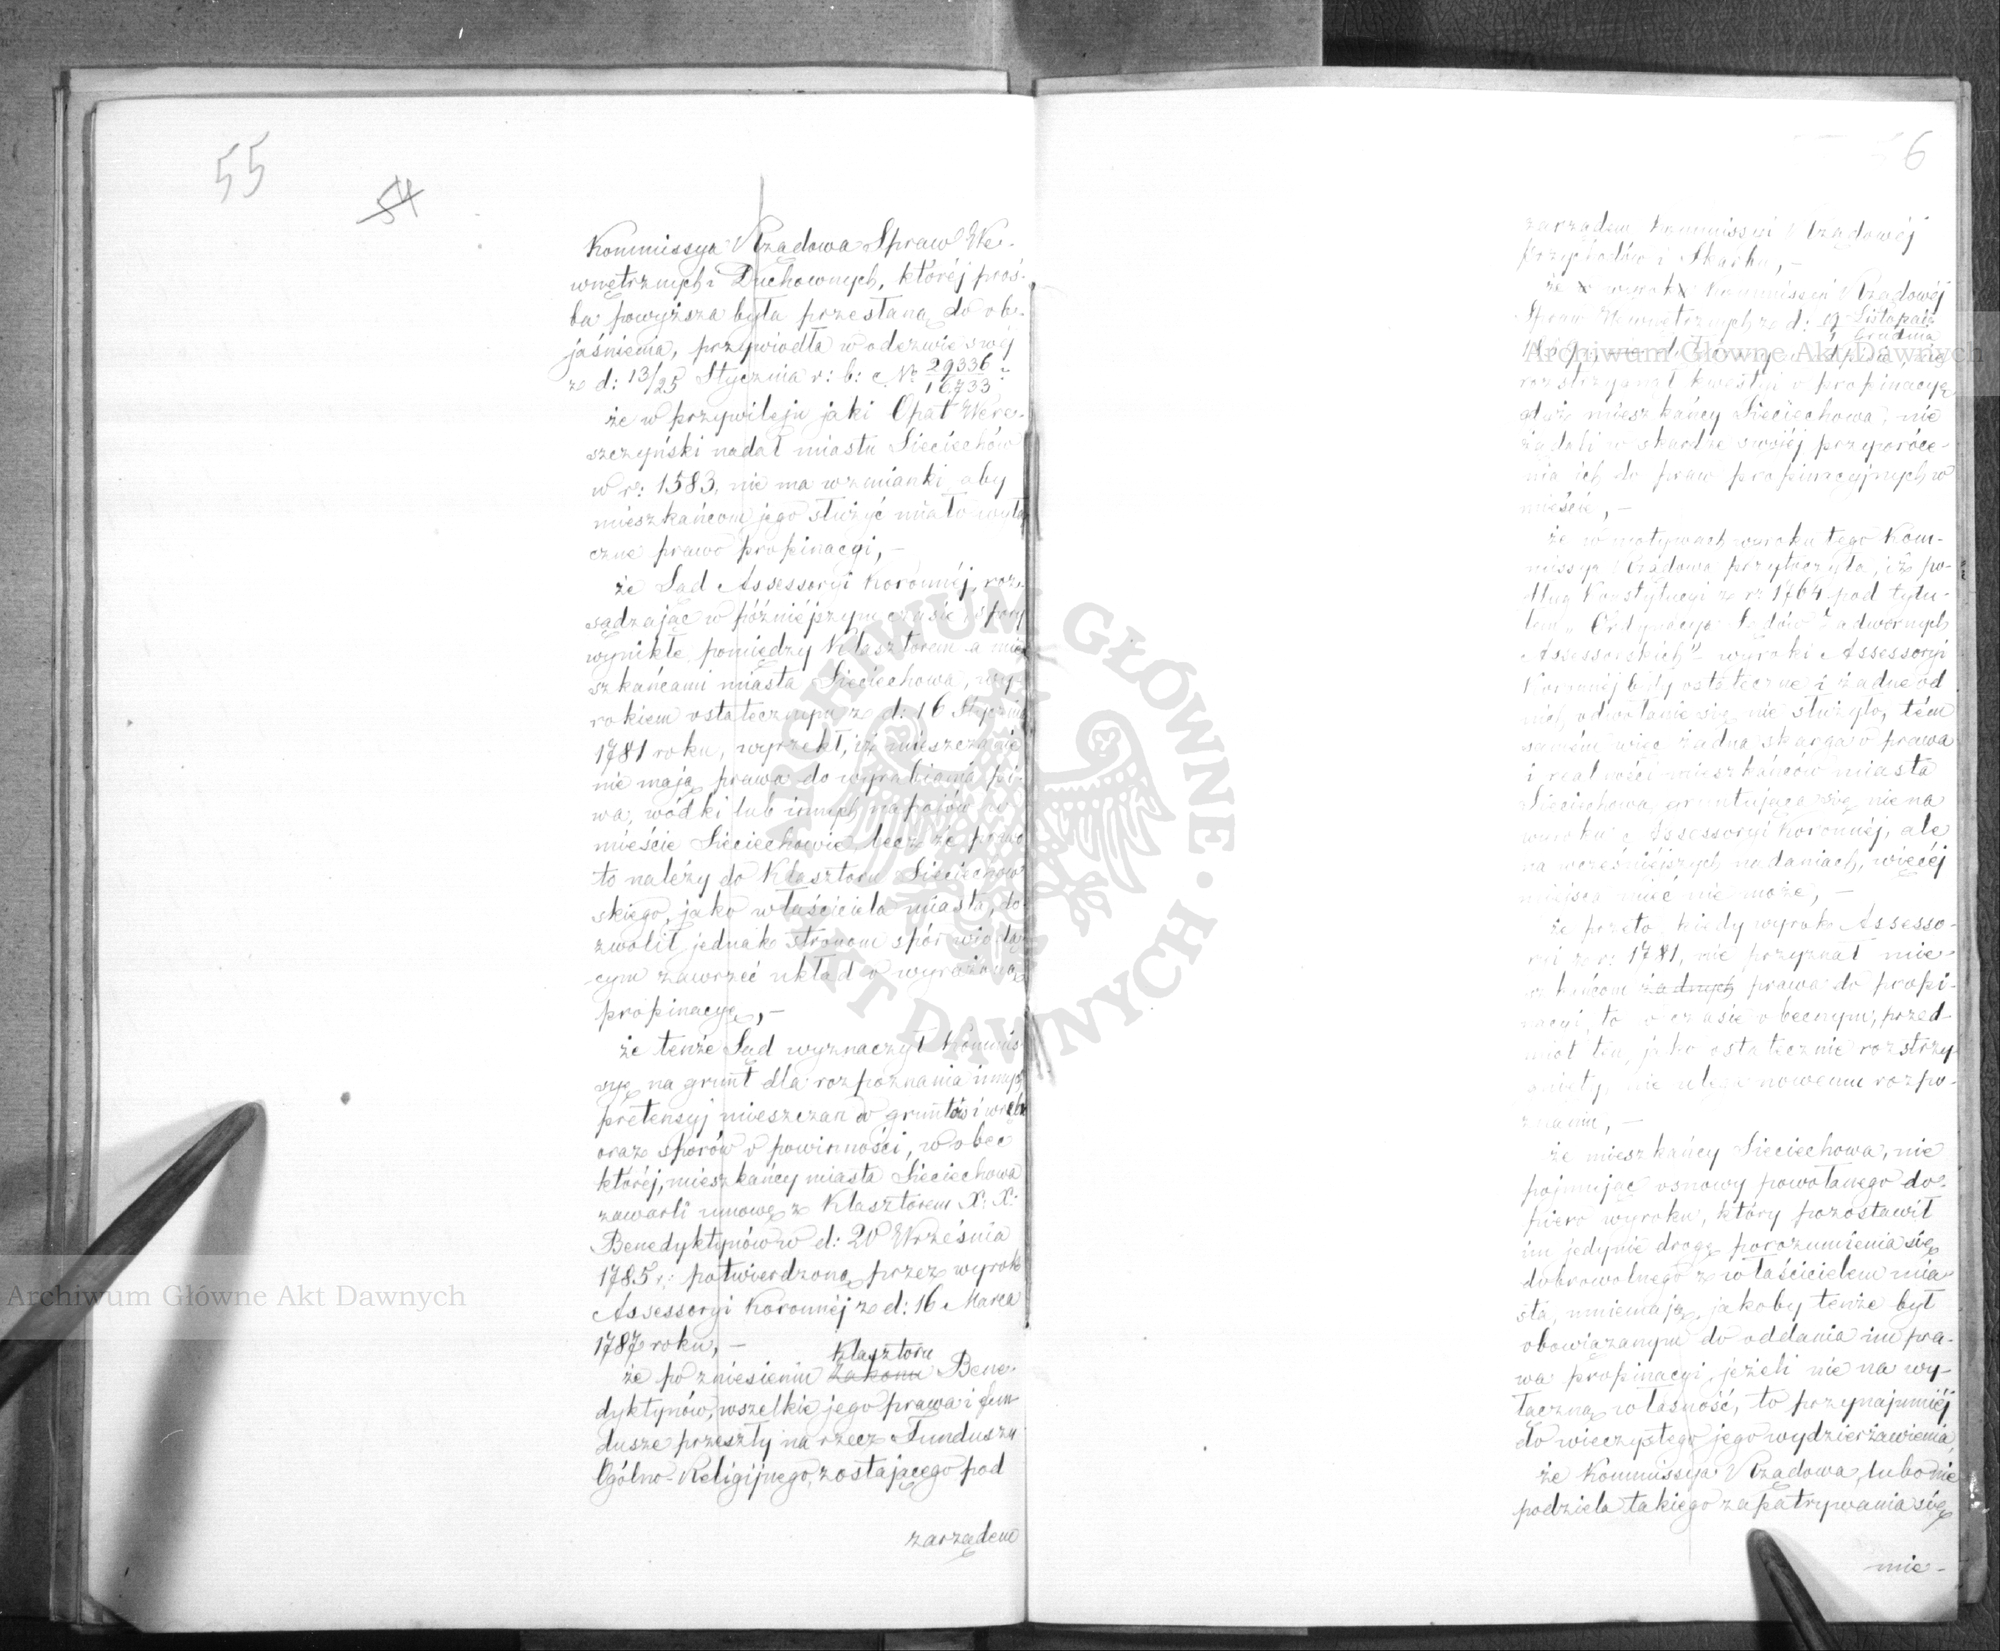 55
54
Kommissya Rządowa Spraw We-
wnętrznych i Duchownych, któréj proś-
ba powyższa była przesłaną do ob-
jaśnienia, przywiodła w odezwie swéj
z d: 13/25 Stycznia r: b: № 29336/16733:
że w przywileju jaki Opat Were-
szczyński nadał miastu Sieciechów
w r: 1583, nie ma wzmianki aby
mieszkańcom jego służyć miało wyłą
czne prawo propinacyi, –
że Sąd Assessoryi Koronnéj, roz-
sądzając w późniéjszym czasie spory
wynikłe pomiędzy Klasztorem a mie
szkańcami miasta Sieciechowa, wy-
rokiem ostatecznym z d: 16 Stycznia
1781 roku, wyrzekł, iż mieszczanie
nie mają prawa do wyrabiania pi-
wa, wódki lub innych napojów w
mieście Sieciechowie, lecz że prawo
to należy do Klasztoru Sieciechow
skiego, jako właściciela miasta, do-
zwolił jednak stronom spór wiodą-
cym zawrzeć układ o wyrażoną
propinacyę, –
że tenże Sąd wyznaczył Kommis-
syę na grunt dla rozpoznania innych
pretensyj mieszczan o gruntów i wręb
oraz sporów o powinności, wobec
któréj, mieszkańcy miasta Sieciechowa
zawarli umowę z Klasztorem X: X:
Benedyktynów w d: 20 Września
1785 r: potwierdzoną przez wyrok
Assessoryi Koronnéj z d: 16 Marca
1787 roku, –
że po zniesieniu Zakonu Klasztoru Bene-
dyktynów, wszelkie jego prawa i fun-
dusze przeszły na rzecz Funduszu
Ogólno-Religijnego, zostającego pod
zarządem
56
zarządem Kommissyi Rządowéj
Przychodów i Skarbu, –
że wyrok Kommissyi Rządowéj
Spraw Wewnętrznych z d: 19 Listopada/1 Grudnia
rozstrzygnął kwestyi o propinacyę
gdyż mieszkańcy Sieciechowa, nie
żądali w skardze swojéj przywróce-
nia ich do praw propinacyjnych w
mieście, –
że w motywach wyroku tego Kom-
missya Rządowa przytoczyła, iż po-
dług Konstytucyi z r: 1764 pod tytu-
łem „Ordynacya Sądów Zadwornych
Assessorskich" wyroki Assessoryi
Koronnéj były ostateczne i żadne od
nich odwołanie się nie służyło, tém
samém więc żadna skarga o prawa
i realności mieszkańców miasta
Sieciechowa, gruntująca się nie na
wyroku Assessoryi Koronnéj, ale
na wcześniéjszych nadaniach, więcéj
miejsca mieć nie może, –
że przeto kiedy wyrok Assesso-
ryi z r: 1781, nie przyznał mie-
szkańcom żadnych prawa do propi-
nacyi, to w czasie obecnym, przed-
miot ten, jako ostatecznie rozstrzy-
gnięty, nie ulega nowemu rozpo-
znaniu, –
że mieszkańcy Sieciechowa, nie
pojmując osnowy powołanego do-
piero wyroku, który pozostawił
im jedynie drogę porozumienia się
dobrowolnego z właścicielem mia-
sta, mniemają, jakoby tenże był
obowiązanym do oddania im pra-
wa propinacyi, jeżeli nie na wy-
łączną własność, to przynajmniéj
do wieczystego jego wydzierżawienia,
że Kommissya Rządowa, lubo nie
podziela takiego zapatrywania się
mie-
Archiwum Główne Akt Dawnych
Archiwum Główne Akt Dawnych
ARCHIWUM GŁÓWNE AKT DAWNYCH